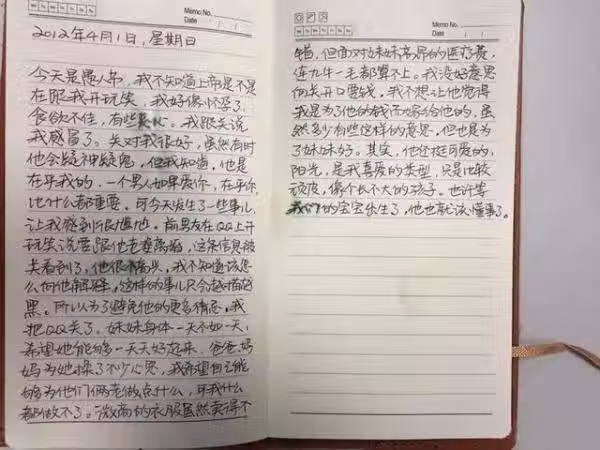 Memo No.
Date / /
2012年4月1日,星期日
今天是愚人节,我不知道上帝是不是
在跟我开玩笑,我好像怀孕了,
食欲不佳,有些恶心。我跟关说
我感冒了。关对我很好,虽然有时
他会疑神疑鬼,但我知道,他是
在乎我的,一个男人如果爱你,在乎你
比什么都重要。可今天发生了一些事儿
让我感到很尴尬。前男友在QQ上开
玩笑说要跟他老婆离婚,这条信息被
关看到了,他很不高兴,我不知道该怎
么向他解释,这样的事儿只会越描越
黑。所以为了避免他的更多猜忌,我
把QQ关了。妹妹身体一天不如一天,
希望她能够一天天好起来,爸爸、妈
妈为她操了不少心思,我希望自己能
够为他们俩老做点什么,可我什么
都做不了。微商的衣服虽然卖得不
Memo No.
Date / /
错,但面对妹妹高昂的医疗费,
连九牛一毛都算不上。我没好意思
向关开口要钱,我不想让他觉得
我是为了他的钱而嫁给他的,虽
然多少有些这样的意思,但也是为
了妹妹好。其实,他还挺可爱的,
阳光,是我喜爱的类型,只是比较
顽皮,像个长不大的孩子。也许等
我们的宝宝出生了,他也就该懂事了。